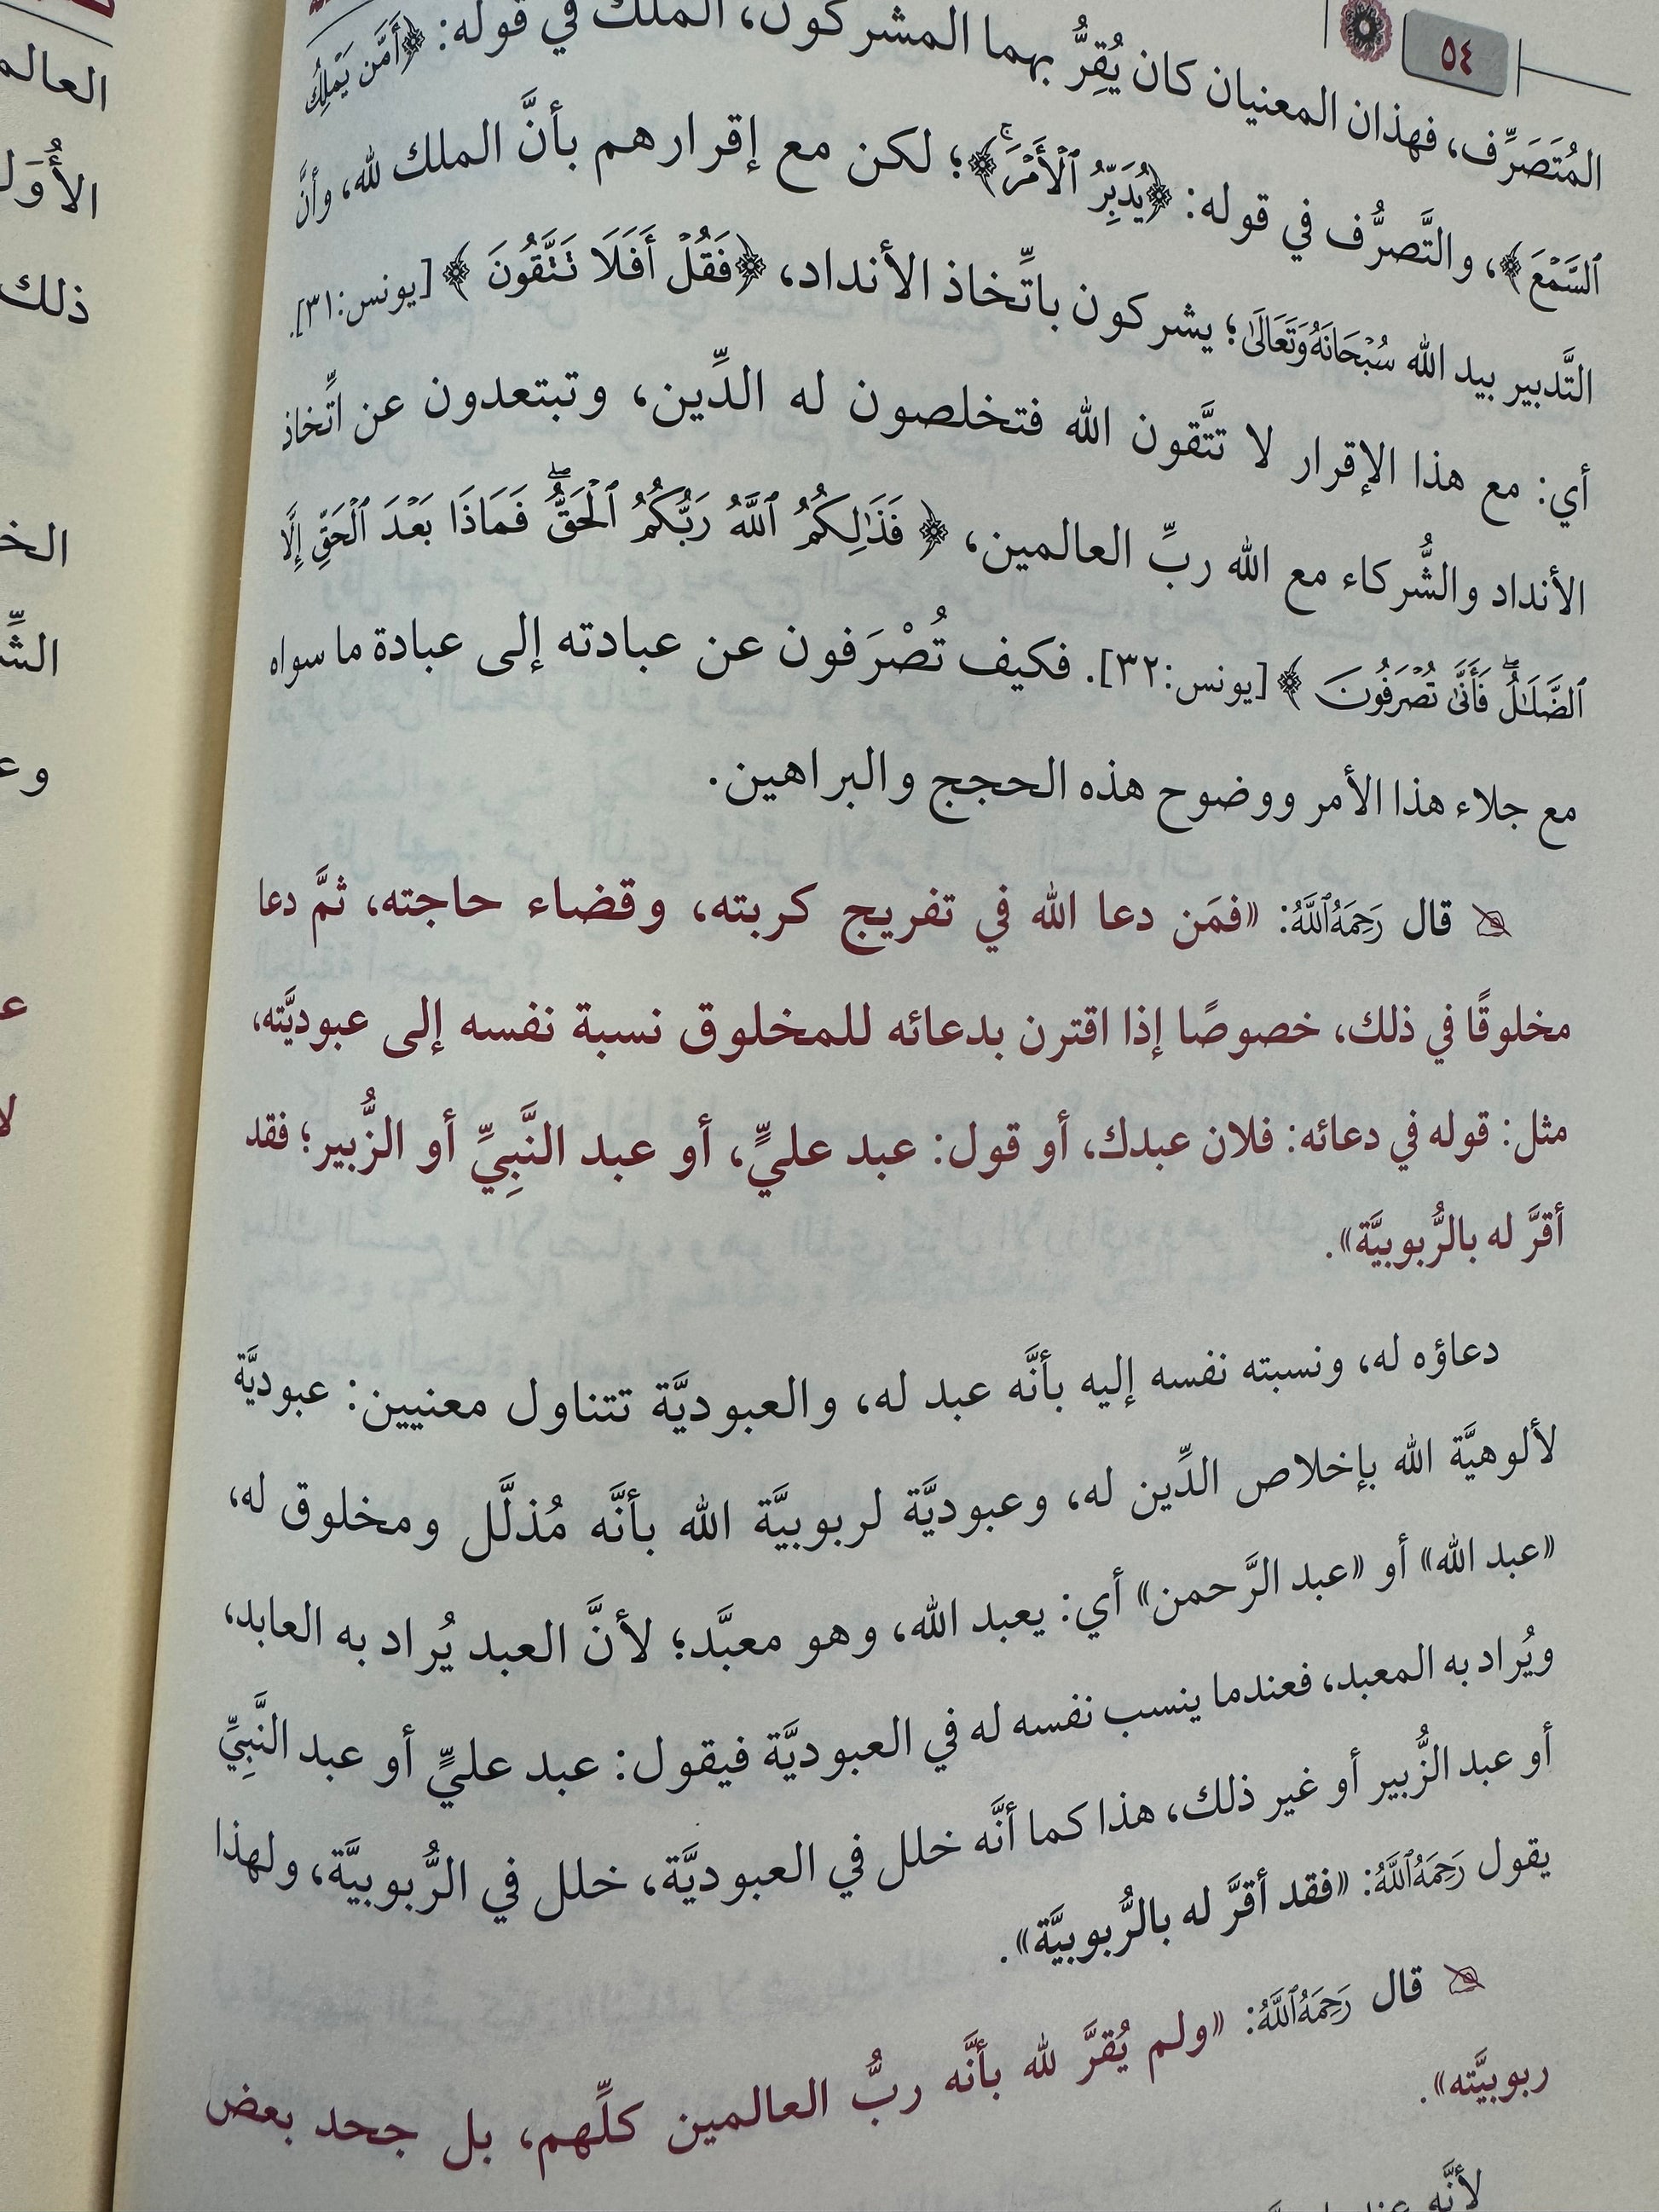 ٥٤
المُتَصَرِّف، فهذان المعنيان كان يُقِرُّ بهما المشركون، الملك في قوله: ﴿أَمَّن يَمْلِكُ
ٱلسَّمْعَ﴾، والتَّصرُّف في قوله: ﴿يُدَبِّرُ ٱلْأَمْرَۚ﴾؛ لكن مع إقرارهم بأنَّ الملك لله، وأنَّ
التَّدبير بيد الله سُبْحَانَهُ وَتَعَالَىٰ؛ يشركون باتِّخاذ الأنداد، ﴿فَقُلْ أَفَلَا تَتَّقُونَ﴾ [يونس:٣١].
أي: مع هذا الإقرار لا تتَّقون الله فتخلصون له الدِّين، وتبتعدون عن اتِّخاذ
الأنداد والشُّركاء مع الله ربِّ العالمين، ﴿فَذَٰلِكُمُ ٱللَّهُ رَبُّكُمُ ٱلْحَقُّۖ فَمَاذَا بَعْدَ ٱلْحَقِّ إِلَّا
ٱلضَّلَٰلُۖ فَأَنَّىٰ تُصْرَفُونَ﴾ [يونس:٣٢]. فكيف تُصْرَفون عن عبادته إلى عبادة ما سواه
مع جلاء هذا الأمر ووضوح هذه الحجج والبراهين.
قال رَحِمَهُ ٱللَّهُ: «فمَن دعا الله في تفريج كربته، وقضاء حاجته، ثمَّ دعا
مخلوقًا في ذلك، خصوصًا إذا اقترن بدعائه للمخلوق نسبة نفسه إلى عبوديَّته،
مثل: قوله في دعائه: فلان عبدك، أو قول: عبد عليٍّ، أو عبد النَّبِيِّ أو الزُّبير؛ فقد
أقرَّ له بالرُّبوبيَّة».
دعاؤه له، ونسبته نفسه إليه بأنَّه عبد له، والعبوديَّة تتناول معنيين: عبوديَّة
لألوهيَّة الله بإخلاص الدِّين له، وعبوديَّة لربوبيَّة الله بأنَّه مُذلَّل ومخلوق له،
«عبد الله» أو «عبد الرَّحمن» أي: يعبد الله، وهو معبَّد؛ لأنَّ العبد يُراد به العابد،
ويُراد به المعبد، فعندما ينسب نفسه له في العبوديَّة فيقول: عبد عليٍّ أو عبد النَّبِيِّ
أو عبد الزُّبير أو غير ذلك، هذا كما أنَّه خلل في العبوديَّة، خلل في الرُّبوبيَّة، ولهذا
يقول رَحِمَهُ ٱللَّهُ: «فقد أقرَّ له بالرُّبوبيَّة».
قال رَحِمَهُ ٱللَّهُ: «ولم يُقرَّ لله بأنَّه ربُّ العالمين كلِّهم، بل جحد بعض
ربوبيَّته».
لأنَّه
العالم
ذلك